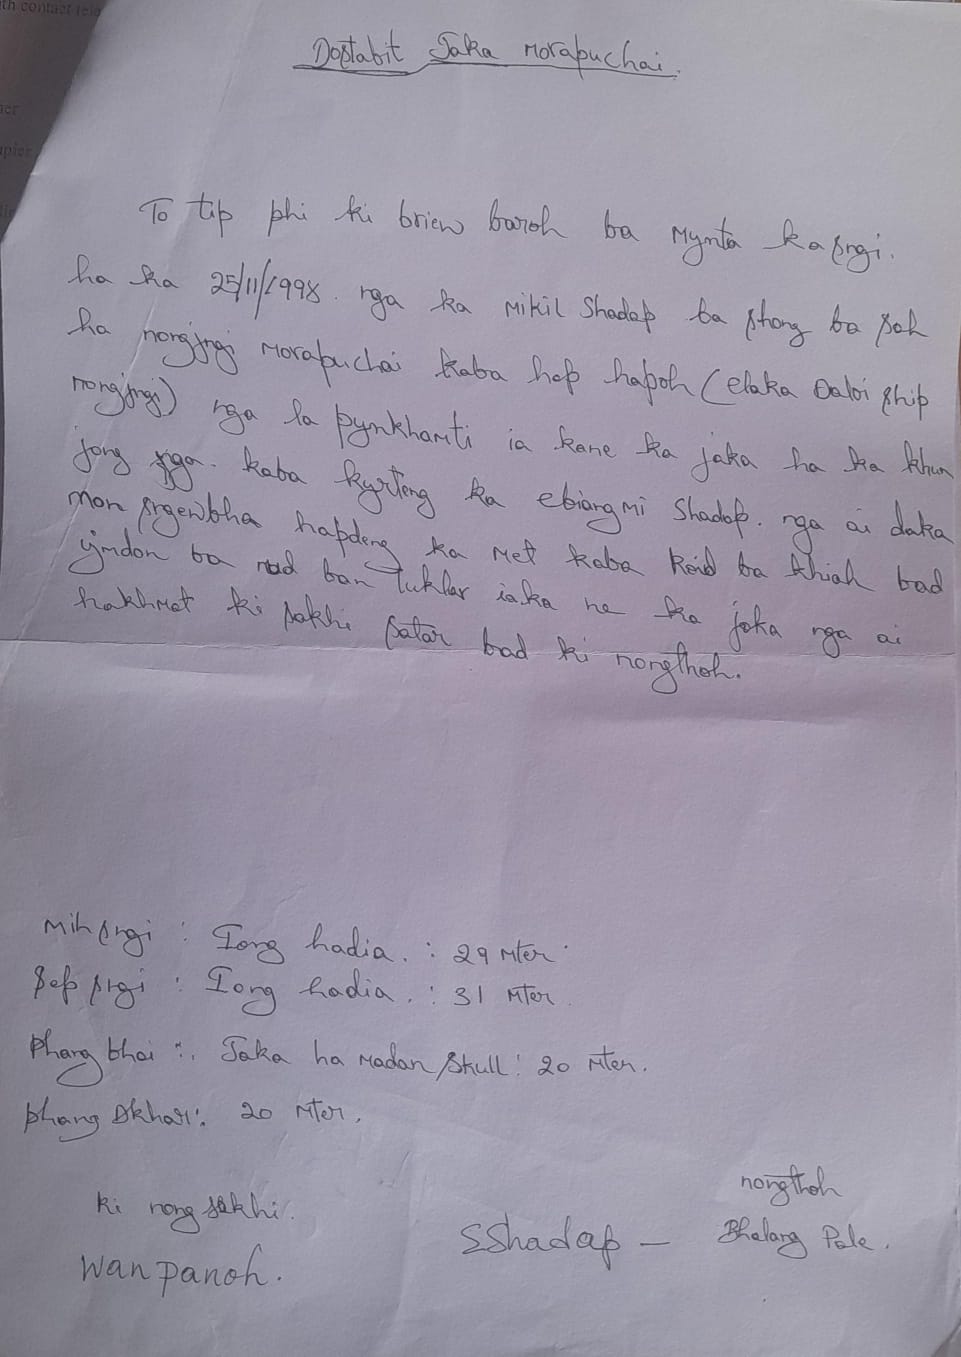 th contact
Doptabit Jaka Morapuchai.
To tip phi ki briew baroh ba Mynta ka sngi.
ha ka 25/11/1998. nga ka Mikil Shadap ba shong ba sah
ha nongjngi Morapuchai kaba hap hapoh (elaka Daloi ship
nongjngi) nga la pynkhamti ia kane ka jaka ha ka khun
jong nga. kaba kyrteng ka ebiangmi Shadap. nga ai daka
mon sngewbha hapdeng ka Met kaba koid ba khiah bad
ymdon ba nud ban tuklar iaka ne ka jaka nga ai
hakhmat ki sakhi satar bad ki nongthoh.
Mih sngi : Iong hadia. : 29 Mter
Sep sngi : Iong hadia. : 31 Mter
Phang bhoi :. Jaka ha Madan Skull : 20 Mter.
phang Dkhar :. 20 Mter.
nongthoh
ki nong sakhi.
SShadap – Bhalang Pale.
Wanpanoh.